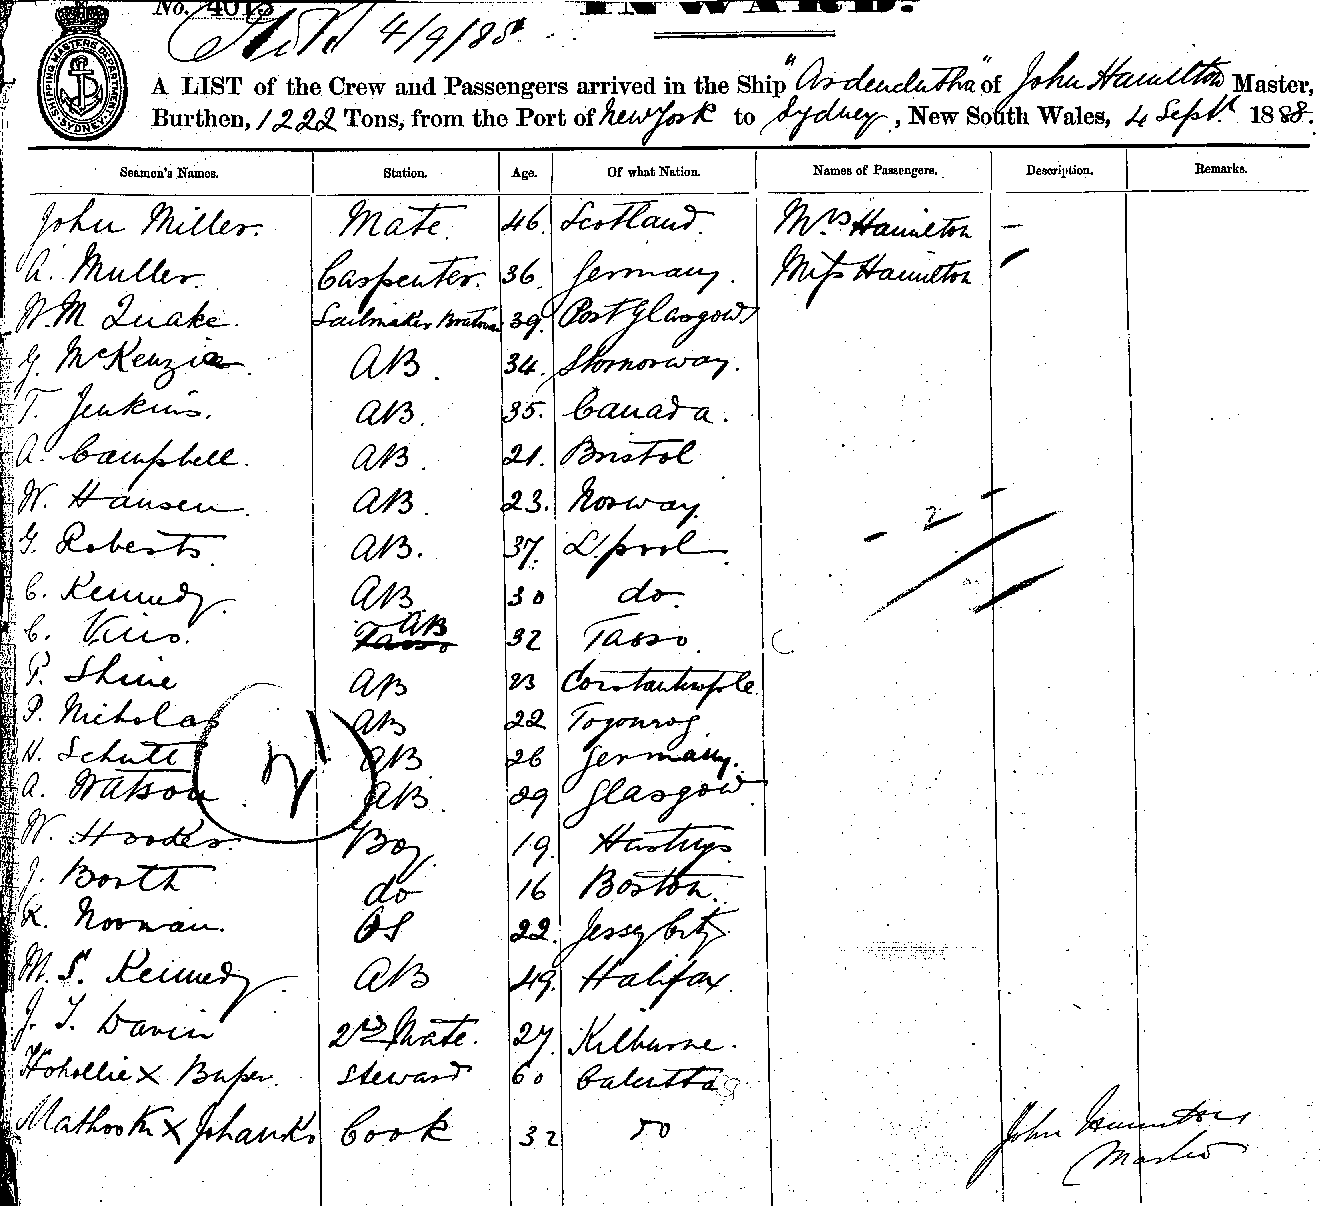 No. 4013
INWARD.
4/9/88
SHIPPING MASTERS DEPARTMENT SYDNEY
A LIST of the Crew and Passengers arrived in the Ship "Ardenclutha" of John Hamilton Master,
Burthen, 1222 Tons, from the Port of New York to Sydney, New South Wales, 4 Sept. 1888.
Seamen's Names. Station. Age. Of what Nation. Names of Passengers. Description. Remarks.
John Miller. Mate. 46. Scotland. Mrs Hamilton —
A. Muller. Carpenter. 36. Germany. Miss Hamilton
W. M Quake. Sailmaker 39. Port Glasgow
G. McKenzie. AB. 34. Stornorway.
T. Jenkins. AB. 35. Canada.
A. Campbell. AB. 21. Bristol
W. Hansen. AB. 23. Norway.
G. Roberts. AB. 37. L'pool - 2 -
C. Kennedy. AB 30 do.
C. AB 32 Tasso.
P. Shine AB 23 Constantinople
P. Nicholas AB 22
H. Schutt AB 26 Germany.
A. Watson AB. 29 Glasgow
W. Boy. 19. Hastings
J. Booth do 16 Boston.
R. Norman. OS 22. Jersey City
M. S. Kennedy. AB 49. Halifax
J. T. Davin 2nd Mate. 27. Kilburne.
X Steward 60 Calcutta
X Cook 32 do
John Hamilton
Master